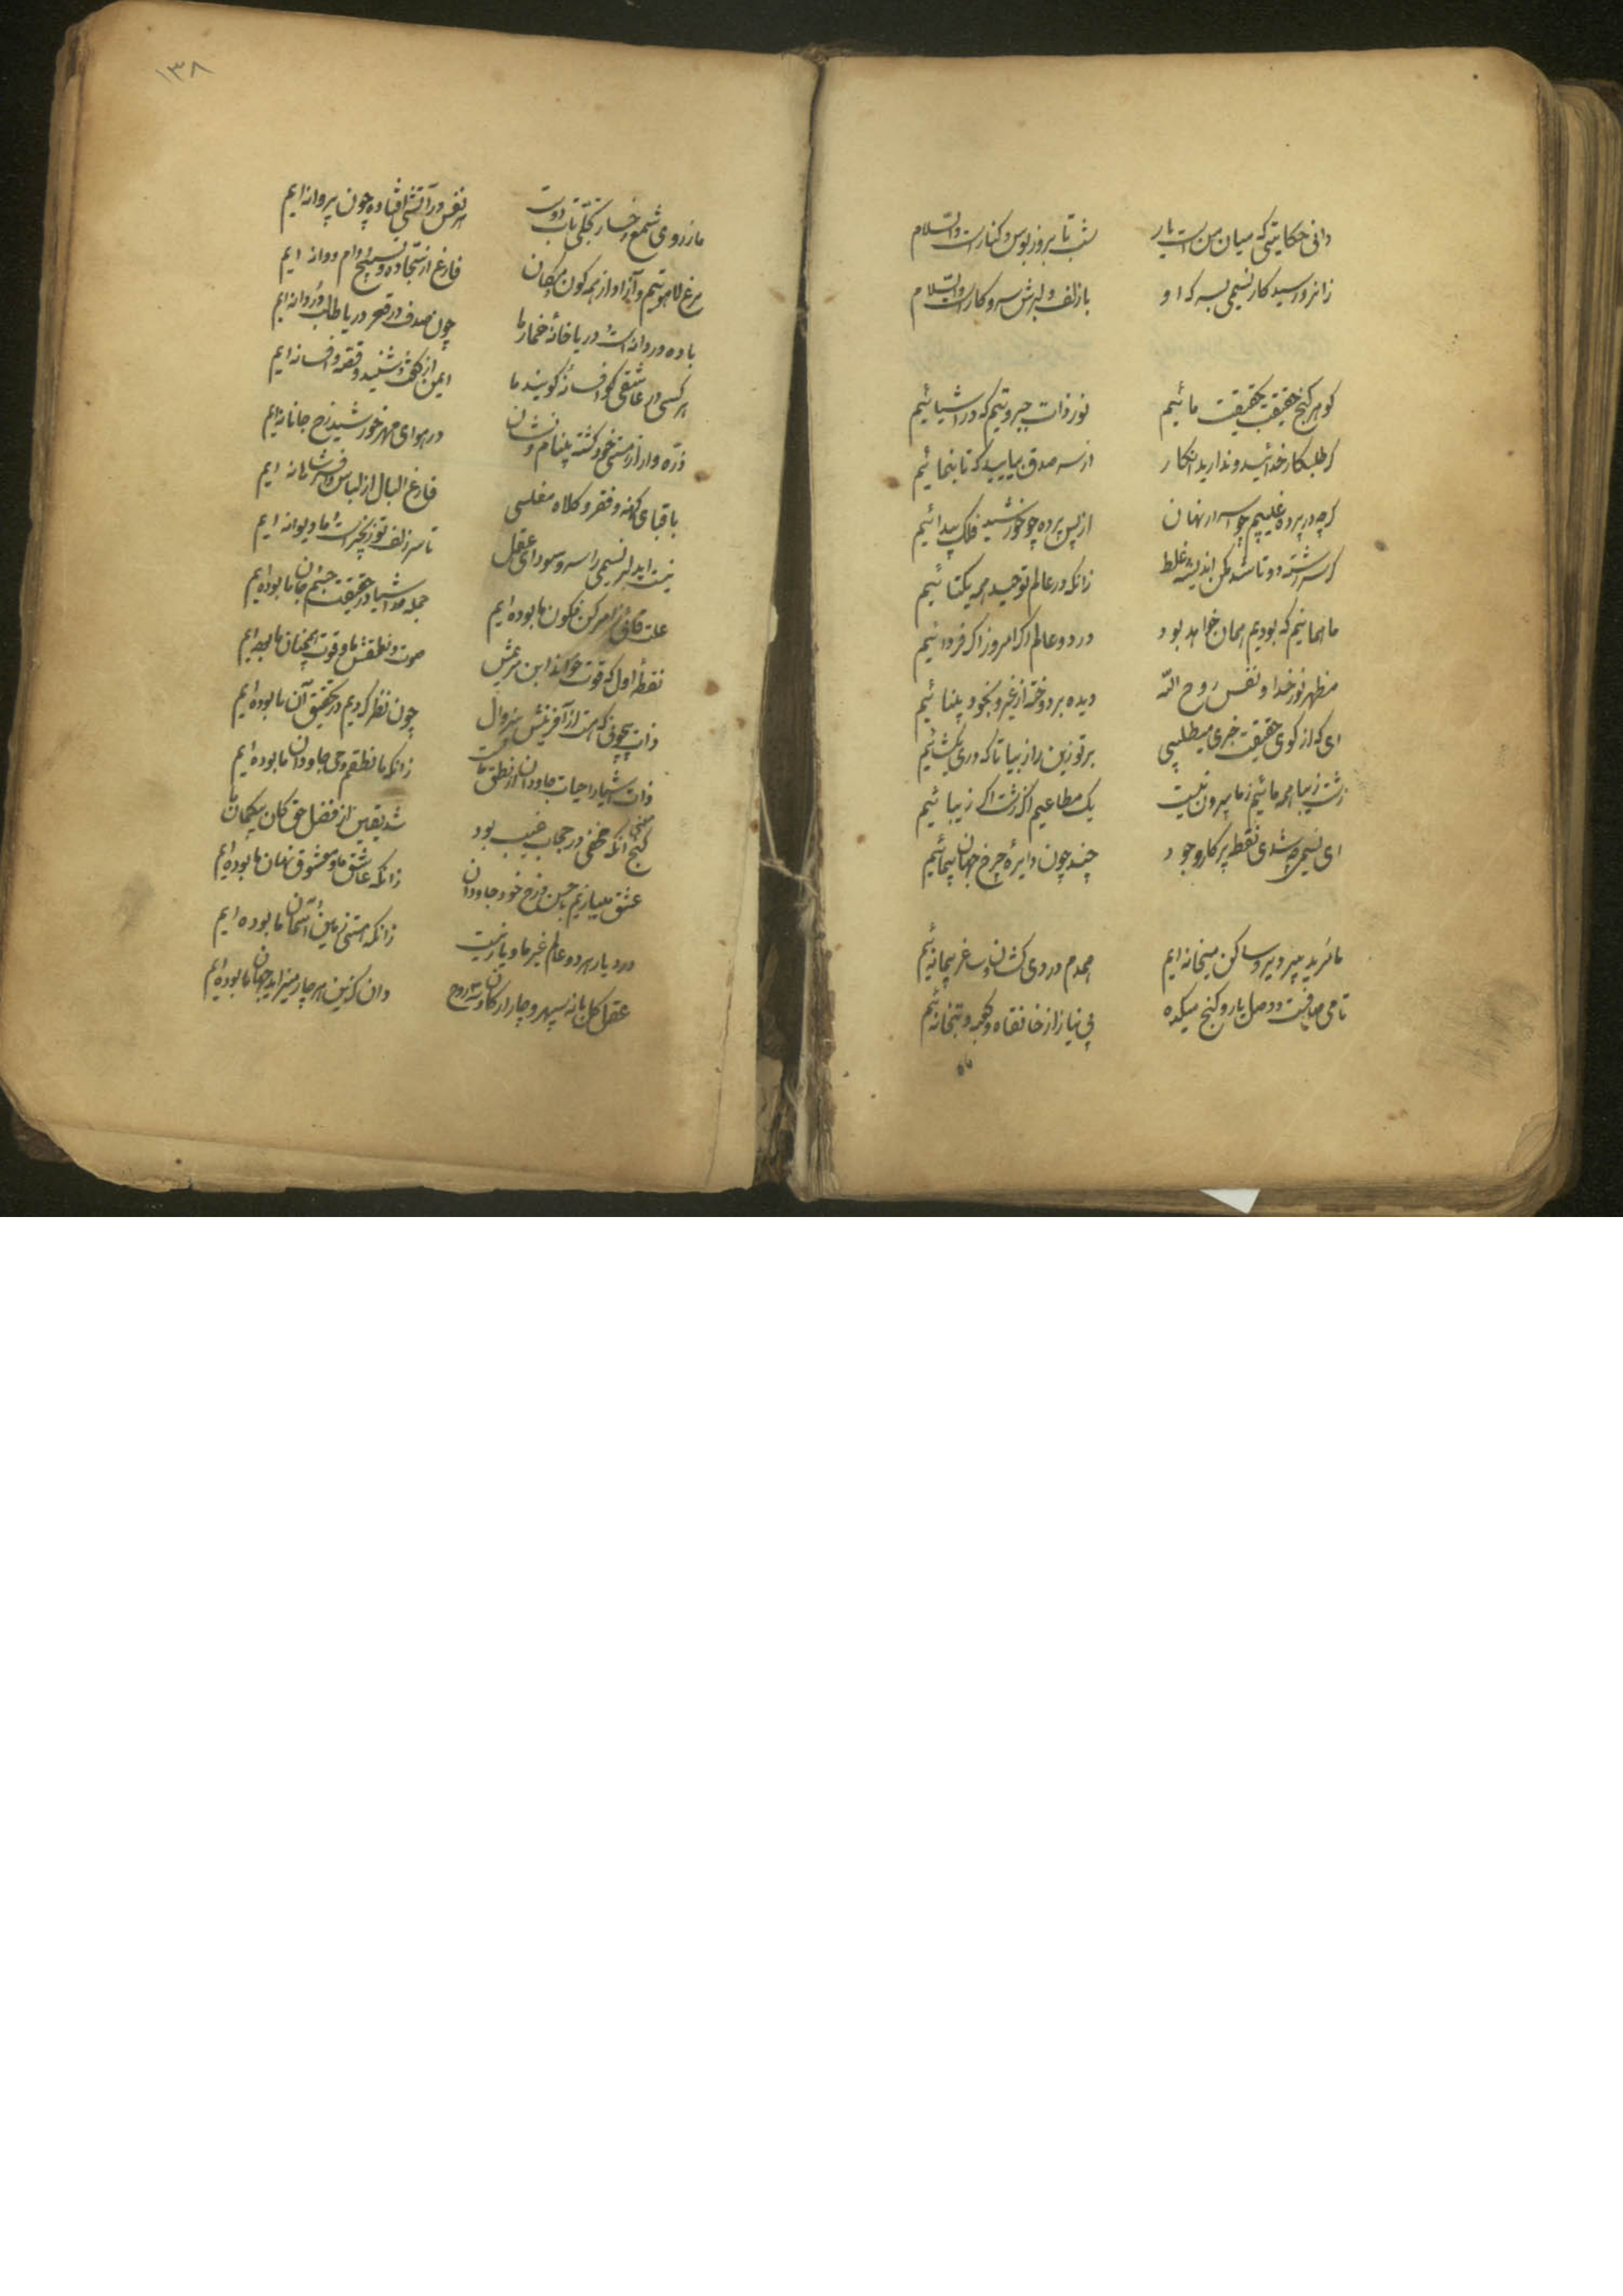 دانی حکایتی که میان من است یار شب تا بروز بوس و کنارست والسلام
زانرو رسید کار نسیمی بسر که او با زلف دلبرش سر و کارست والسلام
گوهر گنج حقیقت بحقیقت مائیم نور ذات جبروتیم که در اشیائیم
گر طلبکار خدائید و ندارید انکار از سر صدق بیایید که تا بنمائیم
گرچه در پرده غیبیم چو اسرار نهان از پس پرده چو خورشید فلک پیدائیم
گر سر رشته دو تا شد مکن اندیشه غلط زانکه در عالم توحید همه یکتائیم
ما همانیم که بودیم همان خواهد بود در دو عالم اگر امروز اگر فردائیم
مظهر نور خدا و نفس روح الله دیده بردوخته از غیر و بخود بینائیم
ای که از کوی حقیقت خبری میطلبی بر تو زین راز بیا تا که دری بگشائیم
زشت و زیبا همه مائیم ز ما بیرون نیست یک مطاعیم اگر زشت اگر زیبائیم
ای نسیمی چه شدی نقطه پرکار وجود چند چون دایره چرخ جهان پیمائیم
ما مرید پیر دیر و ساکن میخانه ایم همدم دردی کشان و ساغر پیمانه ایم
تا می صافیست و وصل یار و کنج میکده بی نیاز از خانقاه و کعبه و بتخانه ایم
ما
۱۳۸
ما ز روی شمع رخسار تجلی تاب دوست هر نفس در آتشی افتاده چون پروانه ایم
مرغ لاهوتیم و آزاد از همه کون و مکان فارغ از سجاده و تسبیح و دام و دانه ایم
باده دردانه است و دریا خانه خمار ما چون صدف در قعر دریا طالب دردانه ایم
هر کسی در عاشقی گو افسانه گویند ما ایمن از گفت و شنید و قصه و افسانه ایم
ذره وار از هستی خود گشته بی نام و نشان در هوای مهر خورشید رخ جانانه ایم
با قبای کهنه و فقر و کلاه مفلسی فارغ البال از لباس و افسر شاهانه ایم
نیست ای دلبر نسیمی را سر و سودای عقل تا سر زلف تو زنجیرست و ما دیوانه ایم
علت قائم ز امر کن فکون ما بوده ایم جمله اشیا در حقیقت جسم و جان ما بوده ایم
نقطه اول که قوت خواند ابن مریمش صوت و نطقش ما و قوت همچنان ما بوده ایم
ذات بیچونی که هست از آفرینش بی زوال چون نظر کردیم در تحقیق آن ما بوده ایم
ذات اشیا را حیات جاودان از نطق ماست زانکه ما نطقیم و حی جاودان ما بوده ایم
گنج معنی آنکه مخفی در حجاب غیب بود شد یقین از فضل حق کان بیگمان ما
عشق میبازیم با حسن رخ خود جاودان زانکه عاشق ما و معشوق نهان ما بوده ایم
در دیار هر دو عالم غیر ما دیار نیست زانکه هستی زمین و آسمان ما بوده ایم
عقل کل با نه سپهر و چار ارکان و سه روح وان کزین هر چار میزاید جهان ما بوده ایم